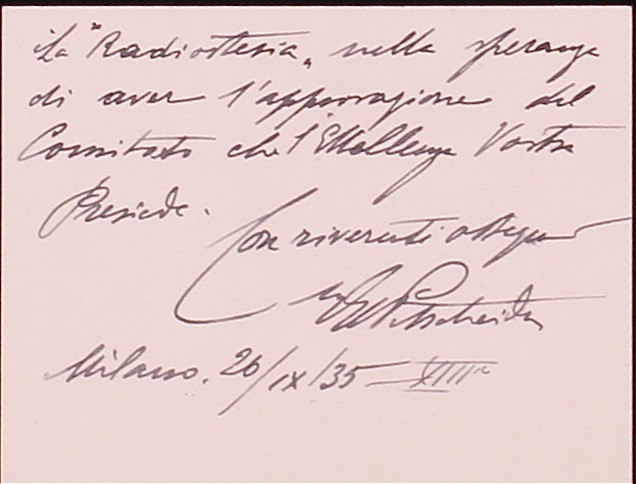 la "Radiestesia„ nella speranza
di aver l'approvazione del
Comitato che l'Eccellenza Vostra
Presiede.
Con riverenti ossequi
Milano, 26/IX/35 – XIII°